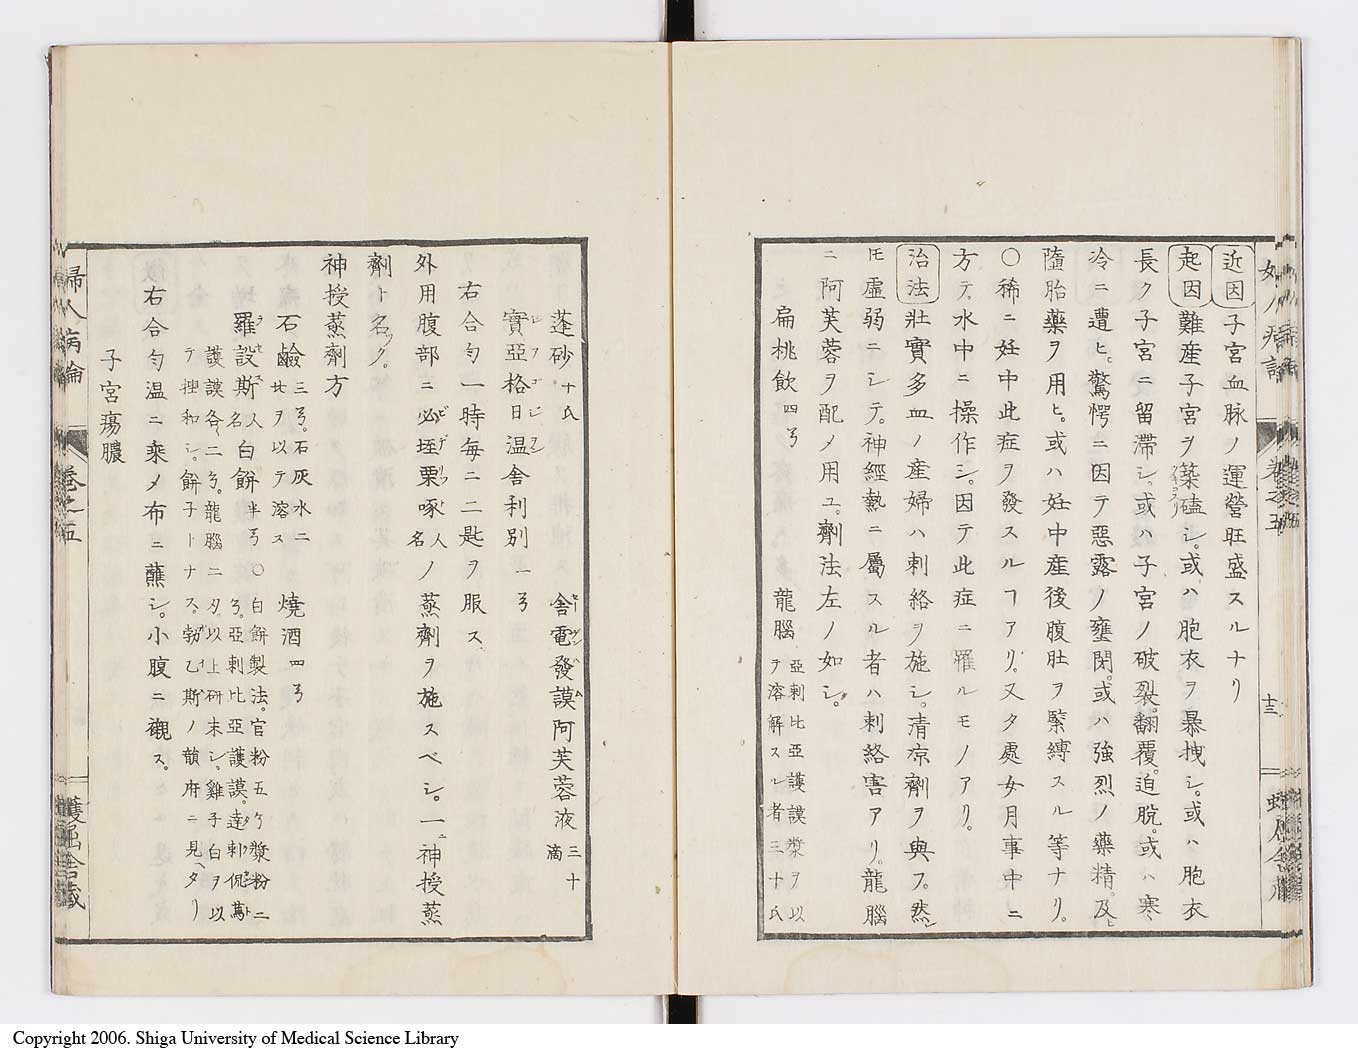 近因子宮血脉ノ運營旺盛スルナリ
起因難産子宮ヲ蘂磕シ。或ハ胞衣ヲ暴拽シ。或ハ胞衣
長ク子宮ニ留滞シ。或ハ子宮ノ破裂。翻覆。迫脱。或ハ寒
冷ニ遭ヒ。驚愕ニ因テ惡露ノ壅閉。或ハ強烈ノ藥精。及ヒ
隨胎藥ヲ用ヒ。或ハ妊中産後腹肚ヲ緊縛スル等ナリ。
〇稀ニ妊中此症ヲ發スルヿアリ。又タ處女月事中ニ
方テ。水中ニ操作シ。因テ此症ニ罹ルモノアリ。
治法壯實多血ノ産婦ハ刺絡ヲ施シ。清凉劑ヲ與フ。然シ
𪜈虚弱ニシテ。神經熱ニ屬スル者ハ刺絡害アリ。龍腦
ニ阿芙蓉ヲ配メ用ユ。劑法左ノ如シ。
扁桃飲四ゟ 龍腦亞刺比亞護謨漿ヲ以
テ溶解スル者三十氏
蓬砂十氏 舎電發謨阿芙蓉液三十
滴
實亞格日温舎利別一ゟ
右合匀一時毎ニ二匙ヲ服ス
外用腹部ニ必垤栗啄人
名ノ蒸劑ヲ施スベシ。一ニ神授蒸
劑ト名ク。
神授蒸劑方
石鹼三ゟ。石灰水二
ヲ以テ溶ス 燒酒四ゟ
羅設斯人
名白餅半ゟ〇白餅製法。官粉五ゲ漿粉二
ゟ。亞刺比亞護謨。達刺侃
護謨各二ゟ。龍腦二タ。以上研末シ。雞子白ヲ以
テ揑和シ。餅子トナス。勃乙斯ノ韻府ニ見ヘタリ
右合匀温ニ乘メ布ニ蘸シ。小腹ニ襯ス。
子宮瘍膿
婦人病論
卷之五
十三